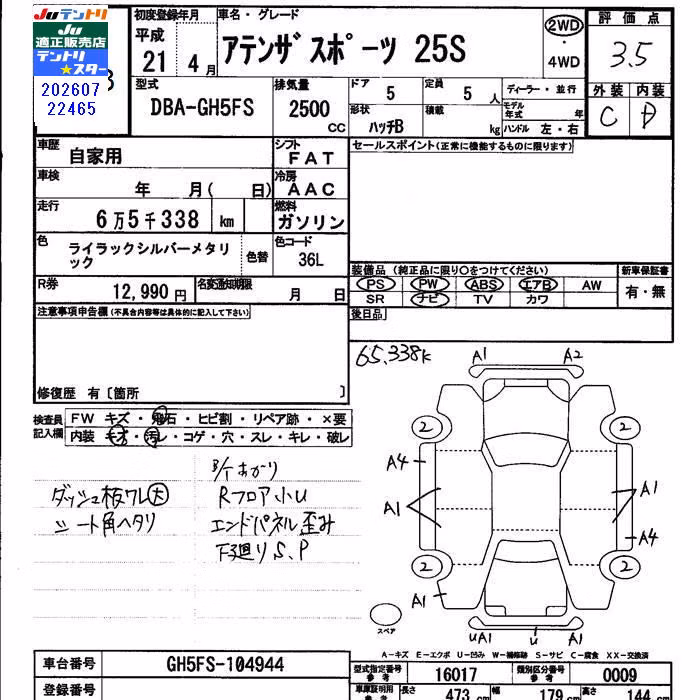 Juテントリ
Ju
適正販売店
テントリ
★スター
202607
22465
初度登録年月
平成
21 4 月
車名・グレード
アテンザスポーツ 25S
2WD
・
4WD
評価点
3.5
型式
DBA-GH5FS
排気量
2500
CC
ドア
5
定員
5 人
形状
ハッチB
積載
kg
ディーラー・並行
モデル年式 年
ハンドル 左・右
外装 内装
C D
車歴
自家用
シフト
FAT
セールスポイント(正常に機能するものに限ります)
車検
年 月( 日)
冷房
AAC
走行
6万5千338 km
燃料
ガソリン
色
ライラックシルバーメタリ
ック
色替
色コード
36L
R券
12,990 円
名変通知期限
月 日
装備品 (純正品に限り○をつけてください)
PS PW ABS エアB AW
SR ナビ TV カワ
新車保証書
有・無
後日品
注意事項申告欄(不具合内容等は具体的に記入して下さい)
修復歴 有〔箇所 〕
65,338k
検査員
記入欄
FW キズ・飛石・ヒビ割・リペア跡・×要
内装・キズ・汚レ・コゲ・穴・スレ・キレ・破レ
ダッシュ板ワレ大
シート角ヘタリ
Rフロア小U
エンドパネル歪み
下廻りS.P
A1 A2
2 2
A4
A1 A1
A4
2 2
A1
UA1 U A1
スペア
A-キズ E-エクボ U-凹み W-補修跡 S-サビ C-腐食 XX-交換済
車台番号
GH5FS-104944
登録番号
型式指定番号
参考
16017
類別区分番号
参考
0009
車庫証明用
参考
長さ
473 cm
幅
179 cm
高さ
144 cm